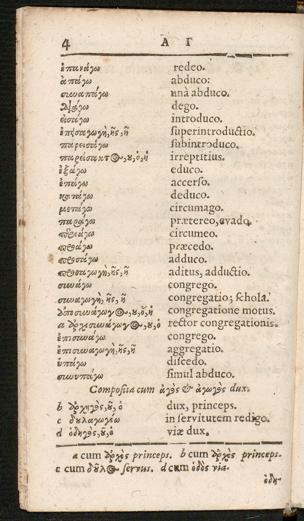 4 Α Γ
ἐπανάγω redeo.
ἀπάγω abduco:
συναπάγω unà abduco.
διάγω dego.
εἰσάγω introduco.
ἐπεισαγωγὴ, ῆς, ἡ superintroductio.
παρεισάγω subintroduco.
παρείσακτος, ου, ὁ, ἡ irreptitius.
ἐξάγω educo.
ἐπάγω accerso.
κατάγω deduco.
μετάγω circumago.
παράγω prætereo, evado.
περιάγω circumeo.
προάγω præcedo.
προσάγω adduco.
προσαγωγὴ, ῆς, ἡ aditus, adductio.
συνάγω congrego.
συναγωγὴ, ῆς, ἡ congregatio; schola.
ἀποσυνάγωγος, ου, ὁ, ἡ congregatione motus.
a ἀρχισυνάγωγος, ου, ὁ rector congregationis.
ἐπισυνάγω congrego.
ἐπισυναγωγὴ, ῆς, ἡ aggregatio.
ὑπάγω discedo.
συνυπάγω simul abduco.
Composita cum ἀγὸς & ἀγωγὸς dux.
b ἀρχηγὸς, οῦ, ὁ dux, princeps.
c δουλαγωγέω in servitutem redigo.
d ὁδηγὸς, οῦ, ὁ viæ dux.
a cum ἀρχὸς princeps. b cum ἀρχὸς princeps.
c cum δοῦλος servus. d cum ὁδὸς via.
ὁδη-